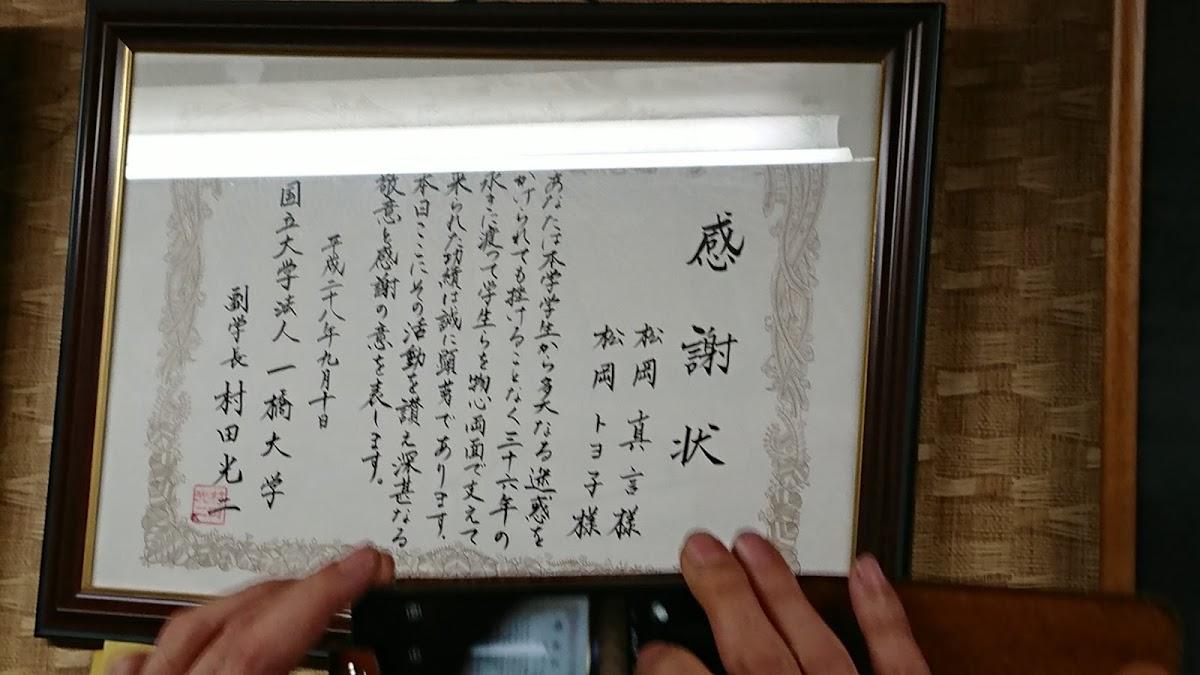 感謝状
松岡 真言様
松岡 トヨ子様
あなたは本学学生から多大なる迷惑を
かけられても挫けることなく三十六年の
永きに渡って学生らを物心両面で支えて
来られた功績は誠に顕著であります。
本日ここにその活動を讃え深甚なる
敬意と感謝の意を表します。
平成二十八年九月十日
国立大学法人 一橋大学
副学長 村田光二